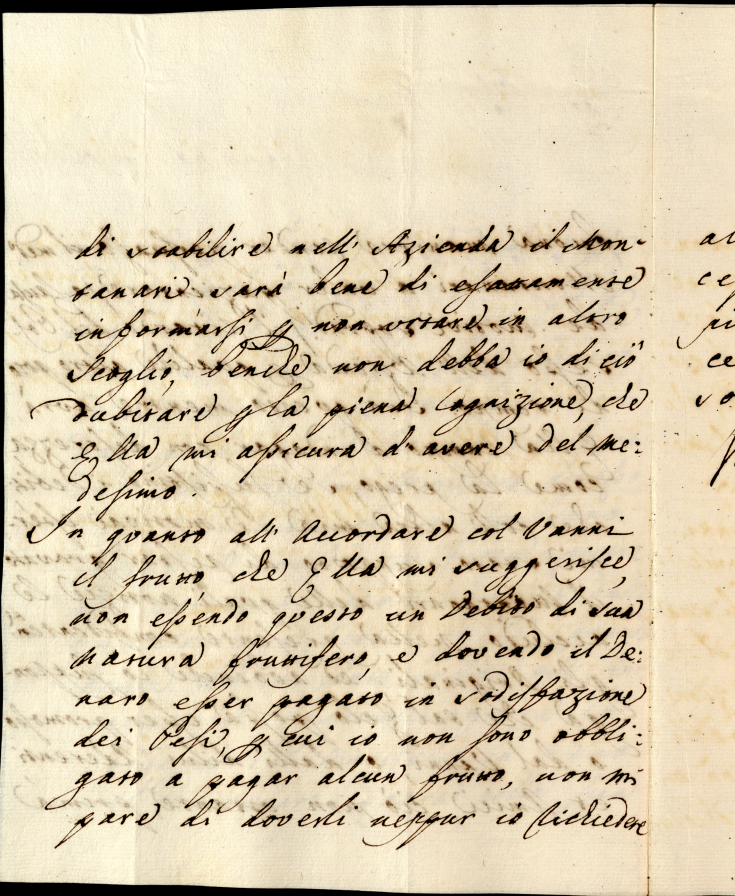 di stabilire nell' Azienda il Mon-
tanari sarà bene di esattamente
informarsi p non urtare in altro
Scoglio, benchè non debba io di ciò
dubitare p la piena Cognizione, che
Ella mi assicura d'avere del me:
desimo.
In quanto all' Accordare col Vanni
il frutto che Ella mi suggerisce,
non essendo questo un Debito di sua
natura fruttifero, e dovendo il De:
naro esser pagato in sodisfazione
dei Pesi, p cui io non sono obbli:
gato a pagar alcun frutto, non mi
pare di doverli neppur io richiedere